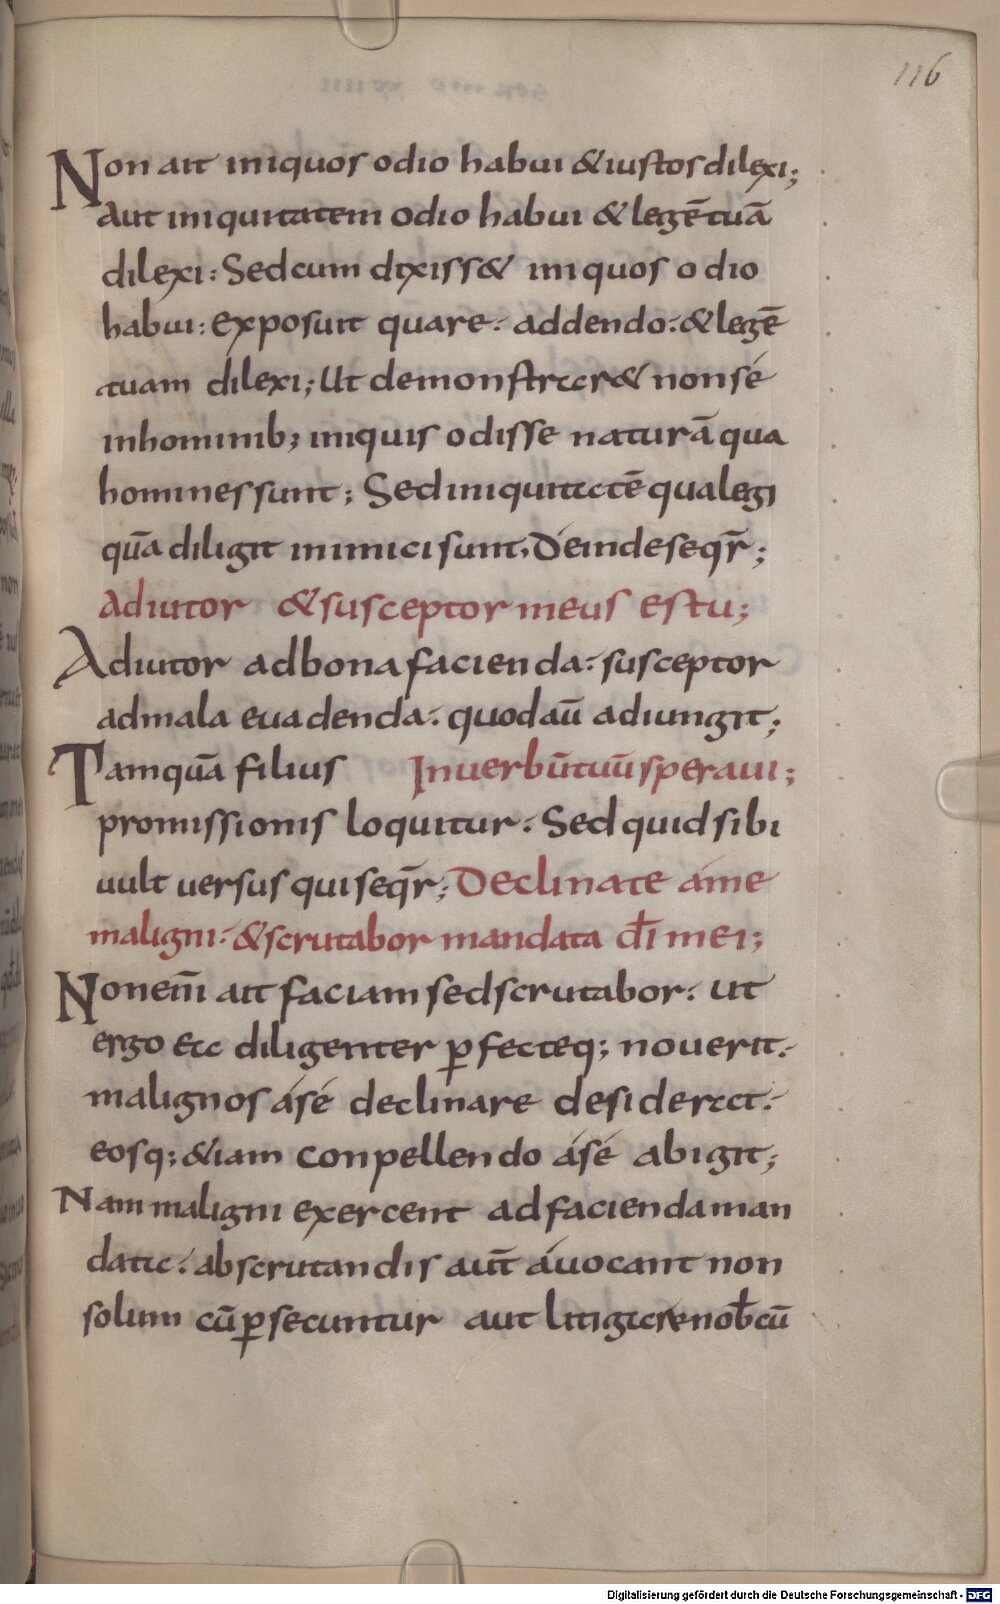 116
Non ait iniquos odio habui & iustos dilexi;
aut iniquitatem odio habui & legē tuā
dilexi: Sed cum dixiss& iniquos odio
habui: exposuit quare: addendo: & legē
tuam dilexi; Ut demonstrar& non sé
in hominib; iniquis odisse naturā qua
homines sunt; Sed iniquitatē qua legi
quā diligit inimici sunt; Deinde seqr̄;
Adiutor & susceptor meus es tu;
Adiutor ad bona facienda: susceptor
ad mala euadenda: quod aū adiungit;
Tamquā filius In uerbū tuū speraui;
promissionis loquitur: Sed quid sibi
uult uersus qui seqr̄; Declinate á me
maligni: & scrutabor mandata dī mei;
Non enī ait faciam sed scrutabor: ut
ergo ea diligenter ꝑfecteq; nouerit:
malignos á sé declinare desiderat:
eosq; &iam conpellendo á sé abigit;
Nam maligni exercent ad facienda man
data: ab scrutandis aūt áuocant non
solum cū ꝑsecuntur aut litigare nob̄cū
Digitalisierung gefördert durch die Deutsche Forschungsgemeinschaft - DFG